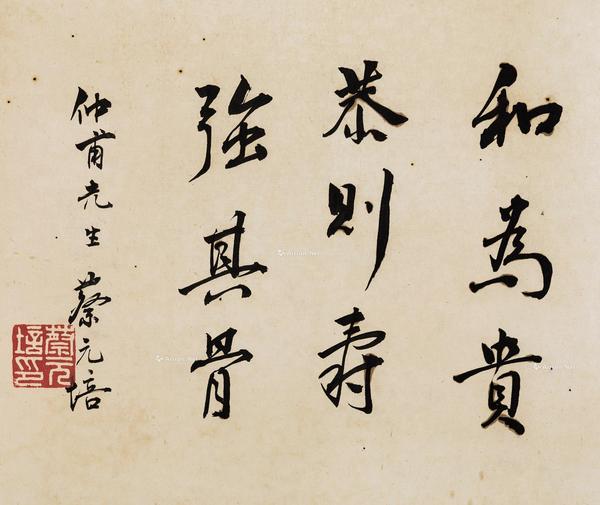 和為貴
恭則壽
強其骨
仲甫先生 蔡元培
蔡元培印